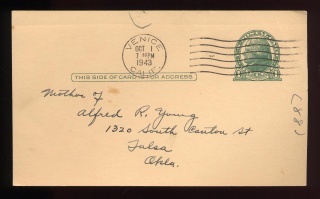 VENICE
OCT 1
7 PM
1943
CALIF.
THIS SIDE OF CARD IS FOR ADDRESS
Mother of
Alfred R. Young
1320 South Canton St
Tulsa
Okla.
(88)